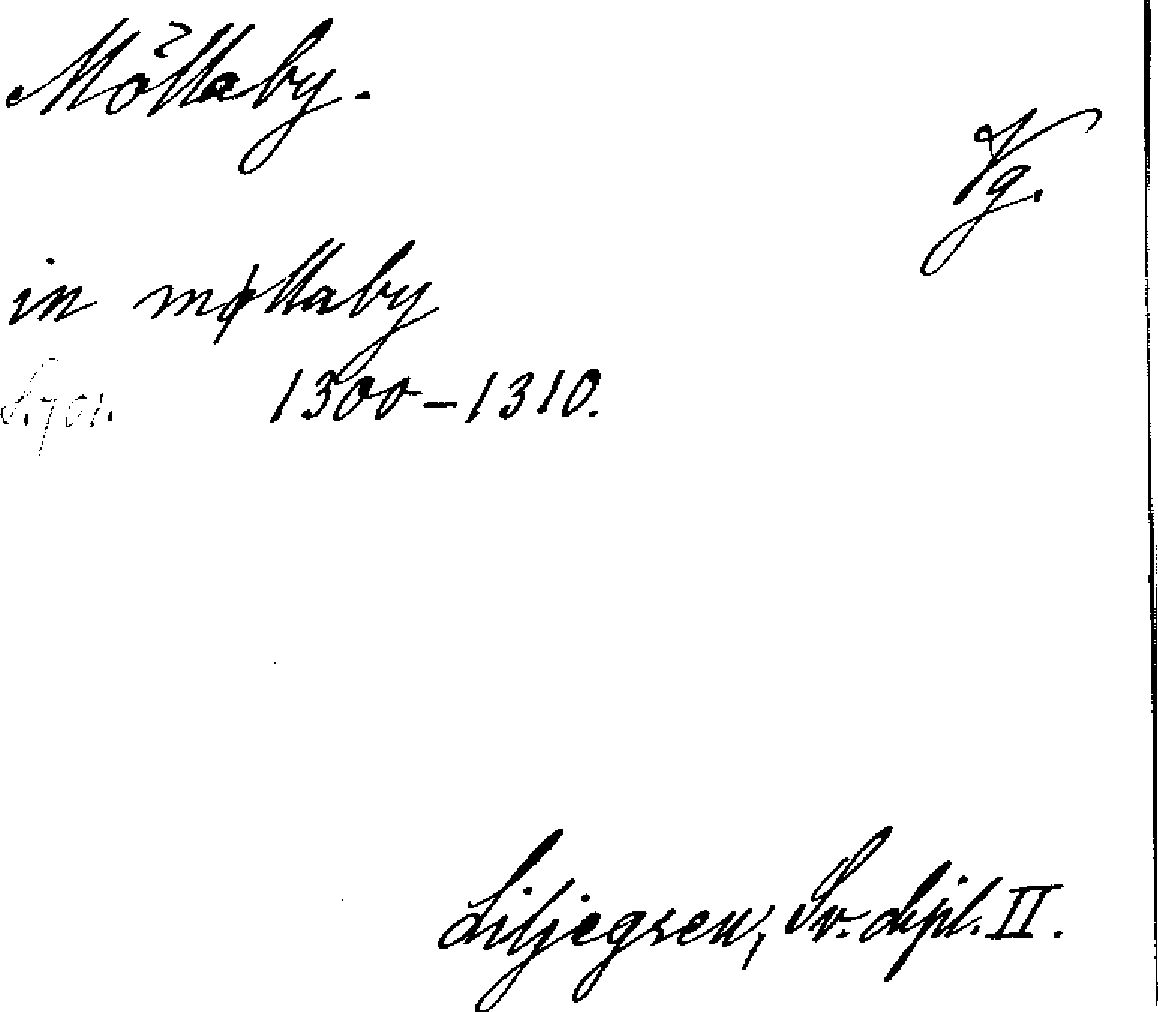 Möllaby.
Vg.
in møllaby
S. 701. 1300–1310.
Liljegren, Sv. dipl. II.